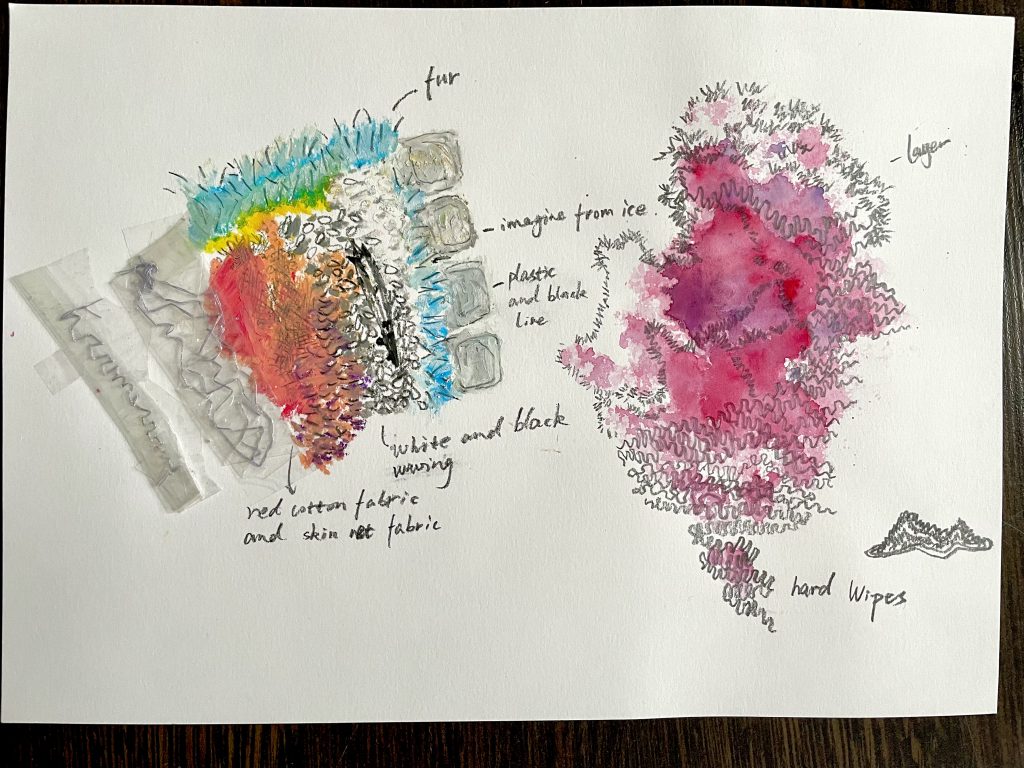 fur
imagine from ice.
plastic
and black
line
white and black
waving
red cotton fabric
and skin net fabric
layer
hard Wipes